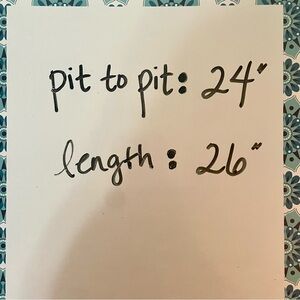 pit to pit: 24"
length: 26"